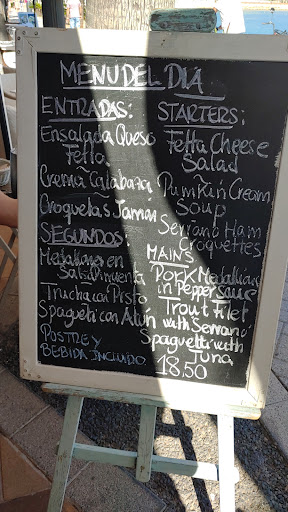 MENU DEL DIA
ENTRADAS:
Ensalada Queso
Fetta
Crema Calabaza
Croquetas Jamon
SEGUNDOS:
Medallones en
Salsa Pimienta
Trucha con Pisto
Spagueti con Atún
POSTRE Y
BEBIDA INCLUIDO
STARTERS:
Fetta Cheese
Salad
Pumpkin Cream
Soup
Serrano Ham
Croquettes
MAINS
Pork Medallions
in Pepper Sauce
Trout Filet
with Serrano
Spaguetti with
Tuna
18,50